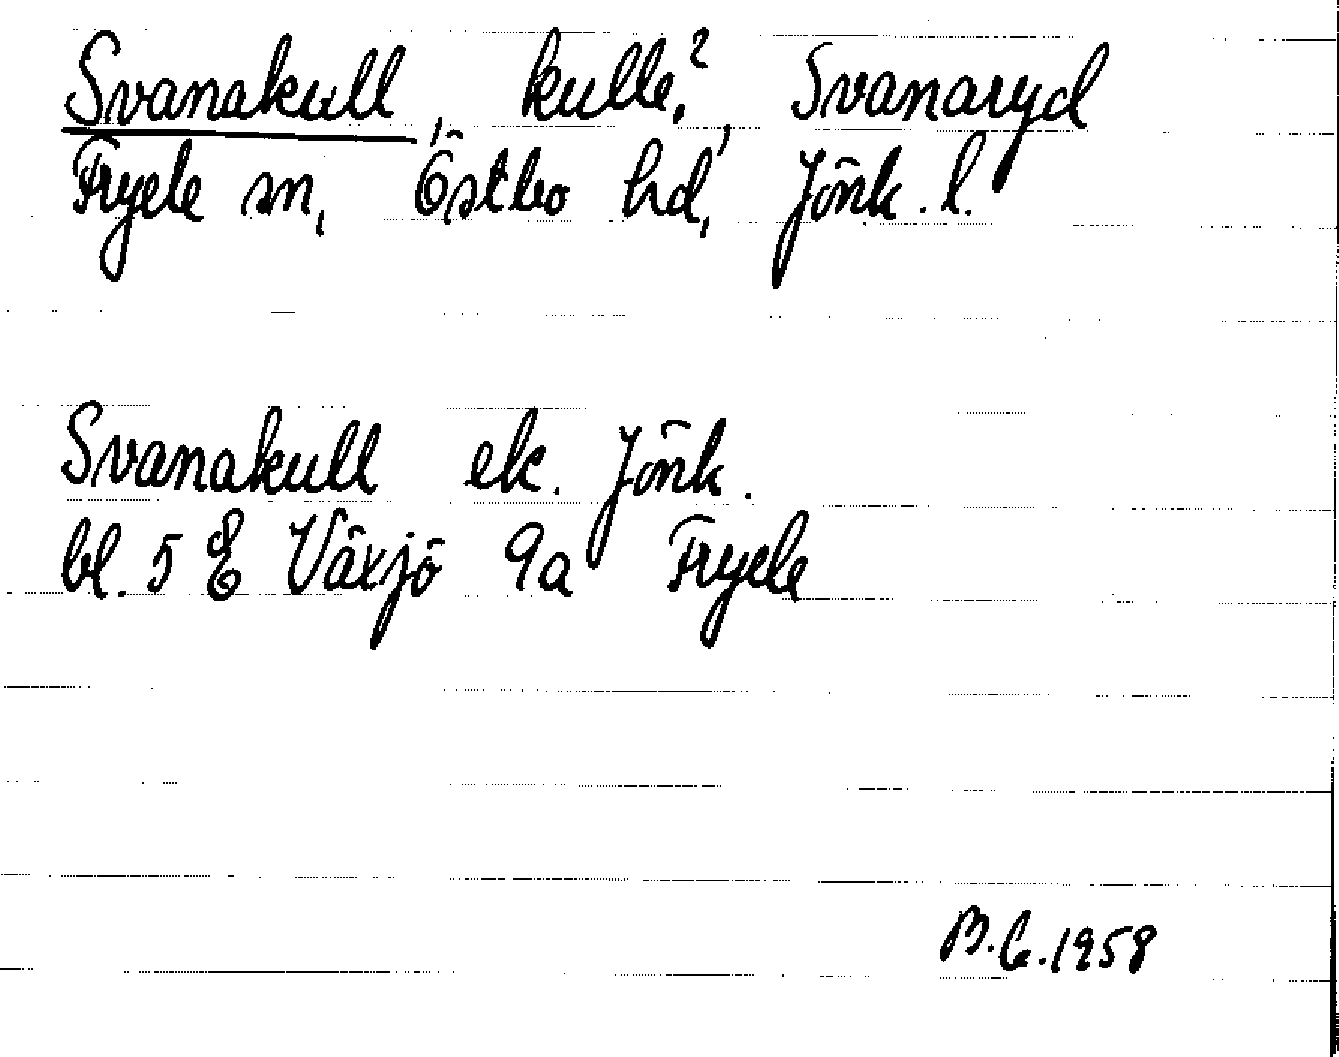 Svanakull, kulle?, Svanaryd
Fryele sn, Östbo hd, Jönk. l.
Svanakull ek. Jönk.
bl. 5 E Växjö 9a Fryele
B.G.1958